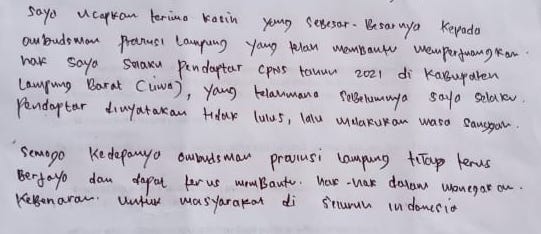 Saya ucapkan terima kasih yang sebesar-besarnya kepada
ombudsman Provinsi Lampung yang telah membantu memperjuangkan.
hak saya selaku pendaptar CPNS tahun 2021 di Kabupaten
Lampung Barat (Liwa), yang telahmana sebelumnya saya selaku.
Pendaptar dinyatakan tidak lulus, lalu melakukan masa sanggah.
Semoga kedepanya ombudsman provinsi lampung tetap terus
Berjaya dan dapat terus membantu. hak-hak dalam menegakan.
Kebenaran. untuk masyarakat di seluruh indonesia